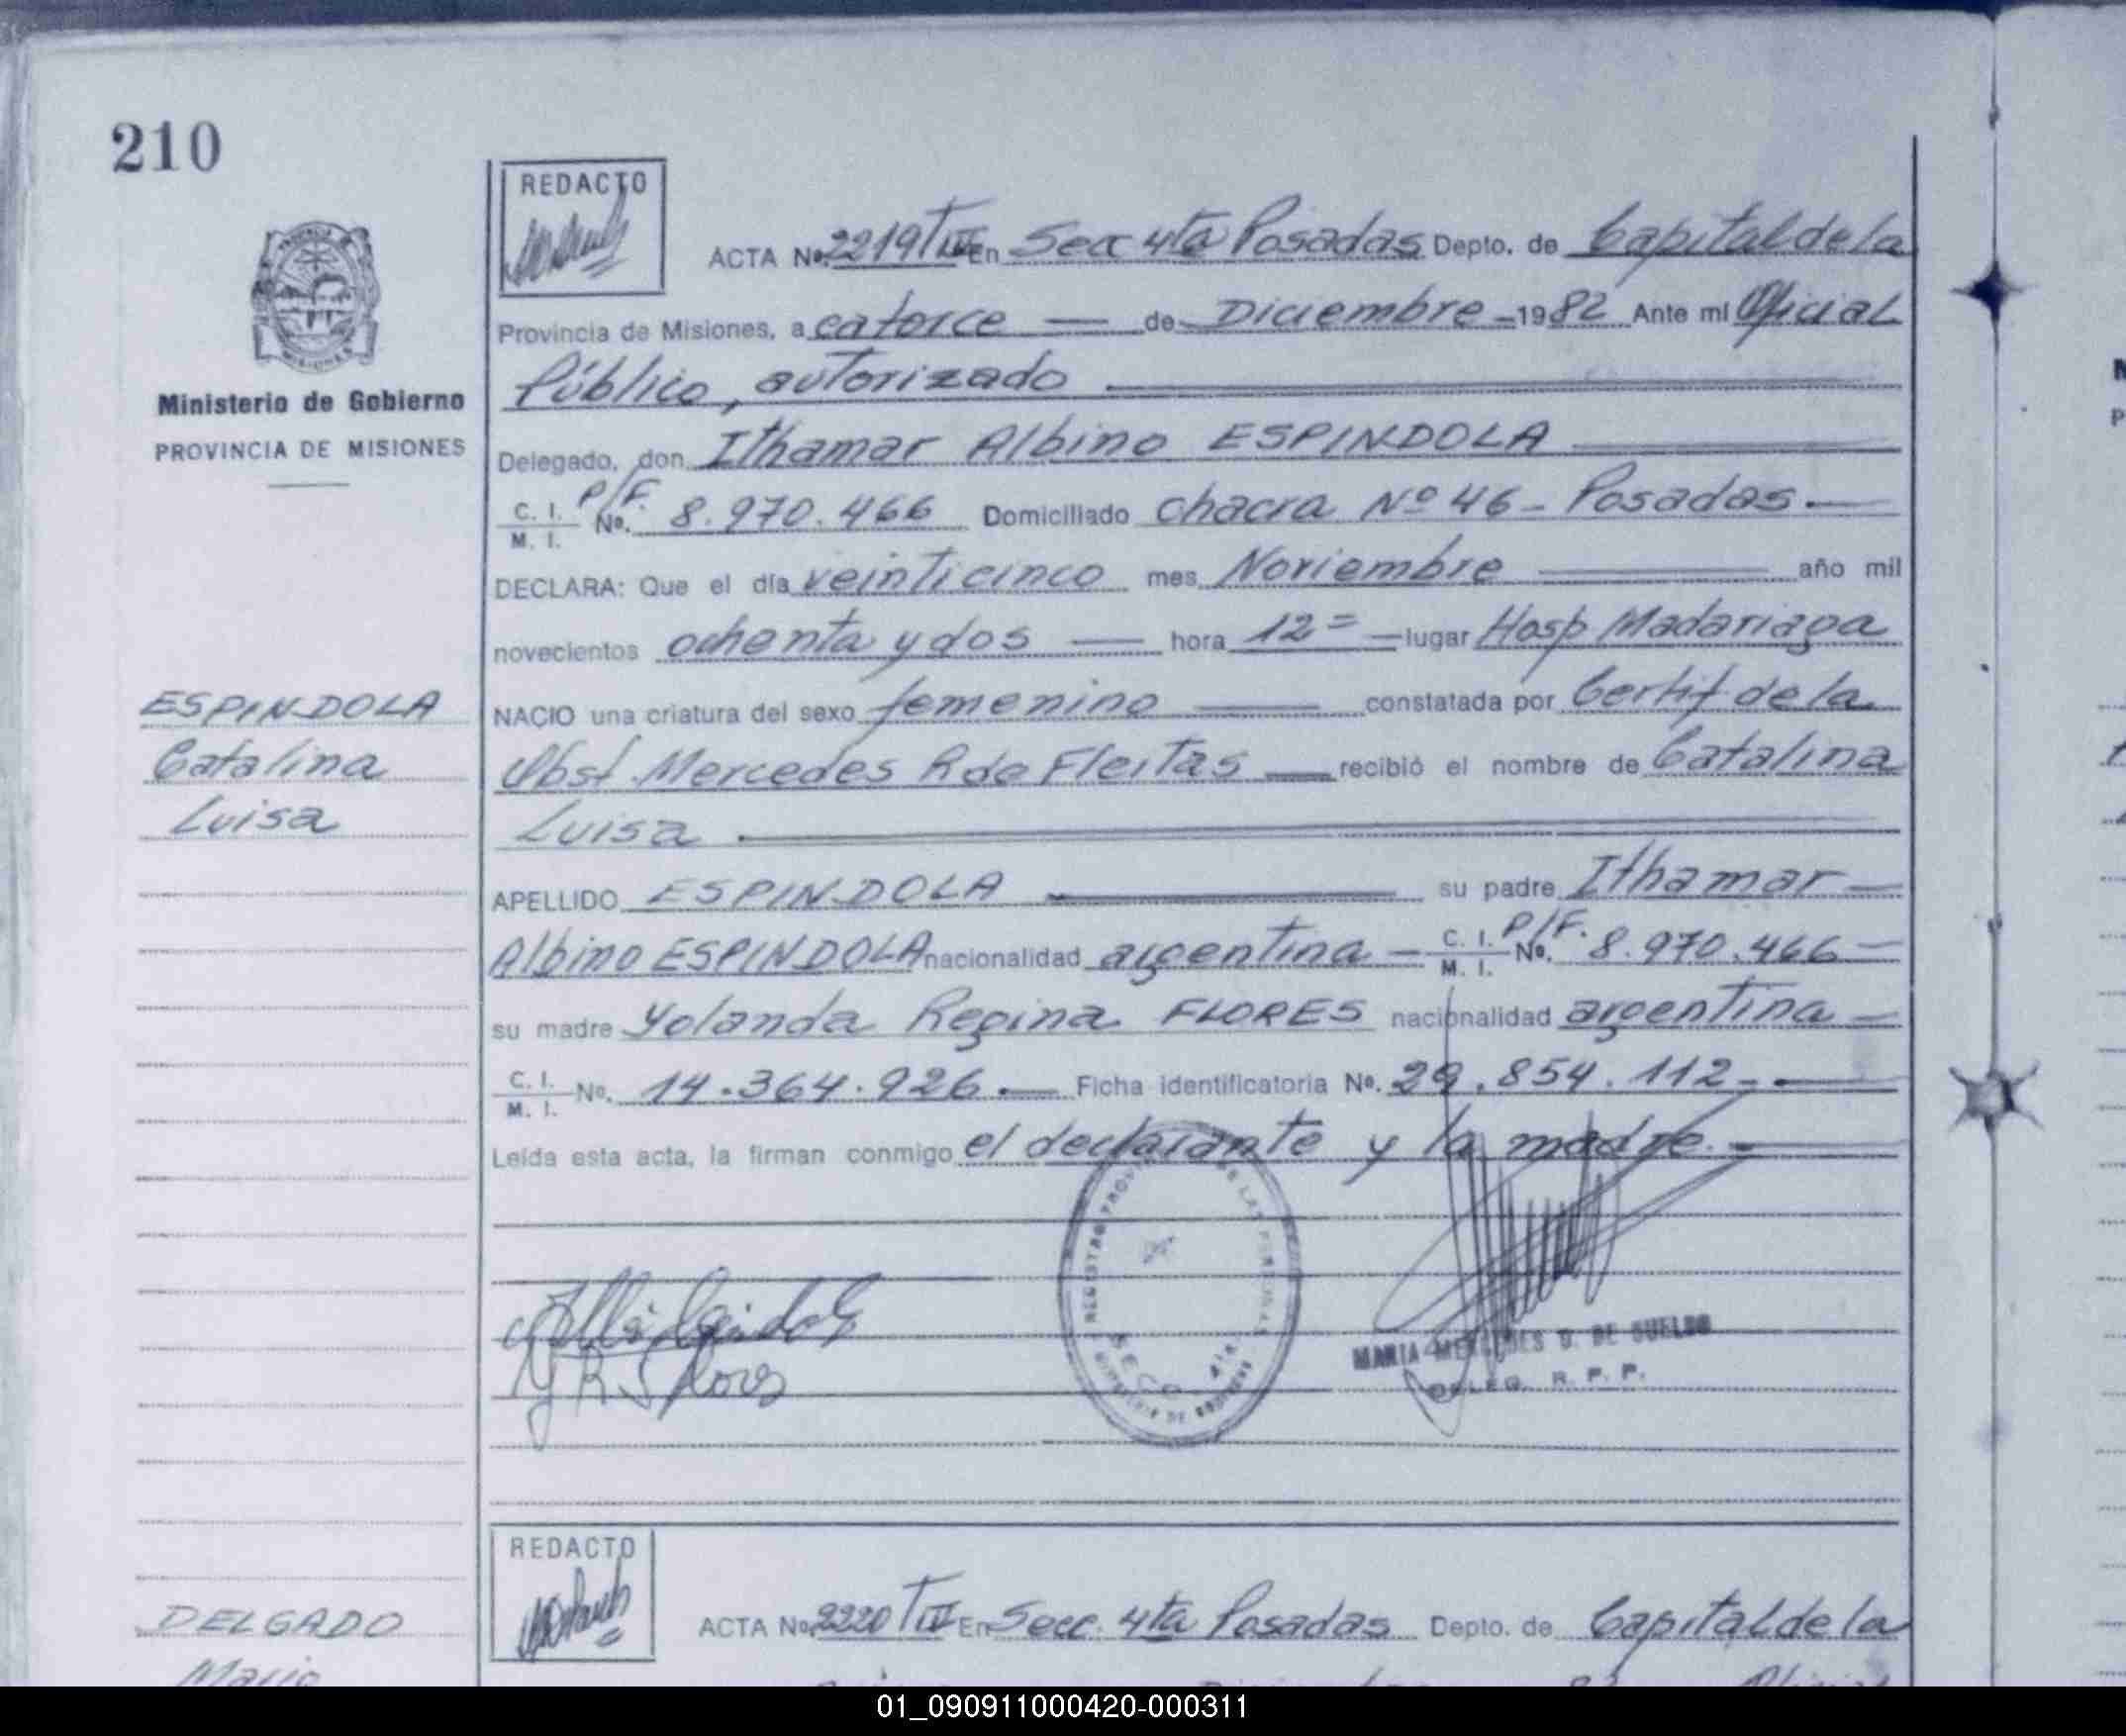 210
REDACTO
ACTA No. 2219 T III En Secc 4ta Posadas Depto. de Capital de la
Provincia de Misiones, a catorce — de Diciembre - 1982 Ante mi Oficial
Ministerio de Gobierno
PROVINCIA DE MISIONES
Público, autorizado
Delegado, don Ithamar Albino ESPINDOLA
C. I. M. I. P/F. No. 8.970.466 Domiciliado chacra Nº 46 - Posadas. —
DECLARA: Que el día veinticinco mes Noviembre — año mil
novecientos ochenta y dos — hora 12 = — lugar Hosp Madariaga
ESPINDOLA
Catalina
Luisa
NACIO una criatura del sexo femenino — constatada por Certif de la
Obst. Mercedes R de Fleitas — recibió el nombre de Catalina
Luisa
APELLIDO ESPINDOLA — su padre Ithamar —
Albino ESPINDOLA nacionalidad argentina — C. I. M. I. P/F. No. 8.970.466 —
su madre Yolanda Regina FLORES nacionalidad argentina —
C. I. M. I. No. 14.364.926. — Ficha identificatoria No. 29.854.112 - —
Leída esta acta, la firman conmigo el declarante y la madre. —
SECC. 4ta.
MARIA MERCEDES G. DE SUELDO
DELEG. R. P. P.
REDACTO
ACTA No. 2220 T III En Secc. 4ta Posadas Depto. de Capital de la
DELGADO
Mario
01_090911000420-000311